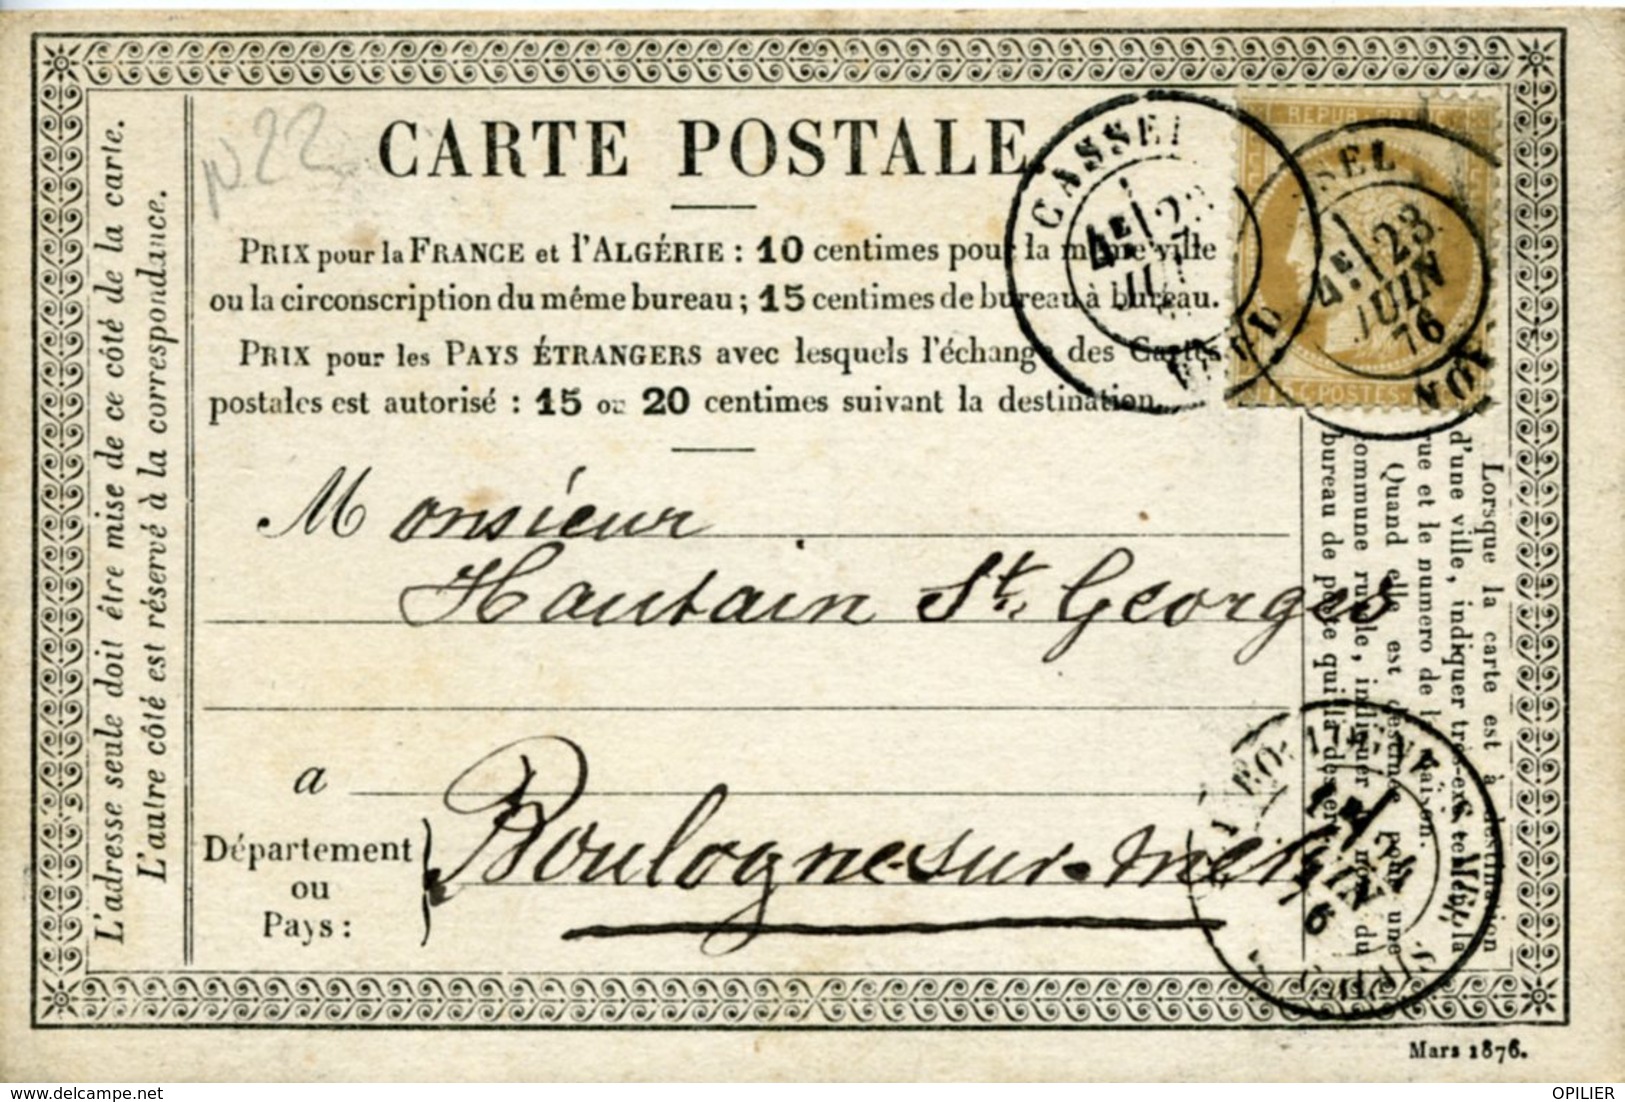 N 22
CARTE POSTALE
PRIX pour la FRANCE et l'ALGÉRIE : 10 centimes pour la même ville
ou la circonscription du même bureau ; 15 centimes de bureau à bureau.
PRIX pour les PAYS ÉTRANGERS avec lesquels l'échange des Cartes
postales est autorisé : 15 ou 20 centimes suivant la destination.
L'adresse seule doit être mise de ce côté de la carte.
L'autre côté est réservé à la correspondance.
CASSEL
4E 23
JUIN
NORD
REPUB
POSTES
SEL
4E 23
JUIN
76
NOR
Monsieur
Hautain St. Georges
a
Département
ou
Pays :
Boulogne-sur-mer
Lorsque la carte est à destination
d'une ville, indiquer très-exactement la
rue et le numero de la maison.
Quand elle est destinée pour une
commune rurale, indiquer le nom du
bureau de poste qui la dessert.
24
Mars 1876.
www.delcampe.net
OPILIER